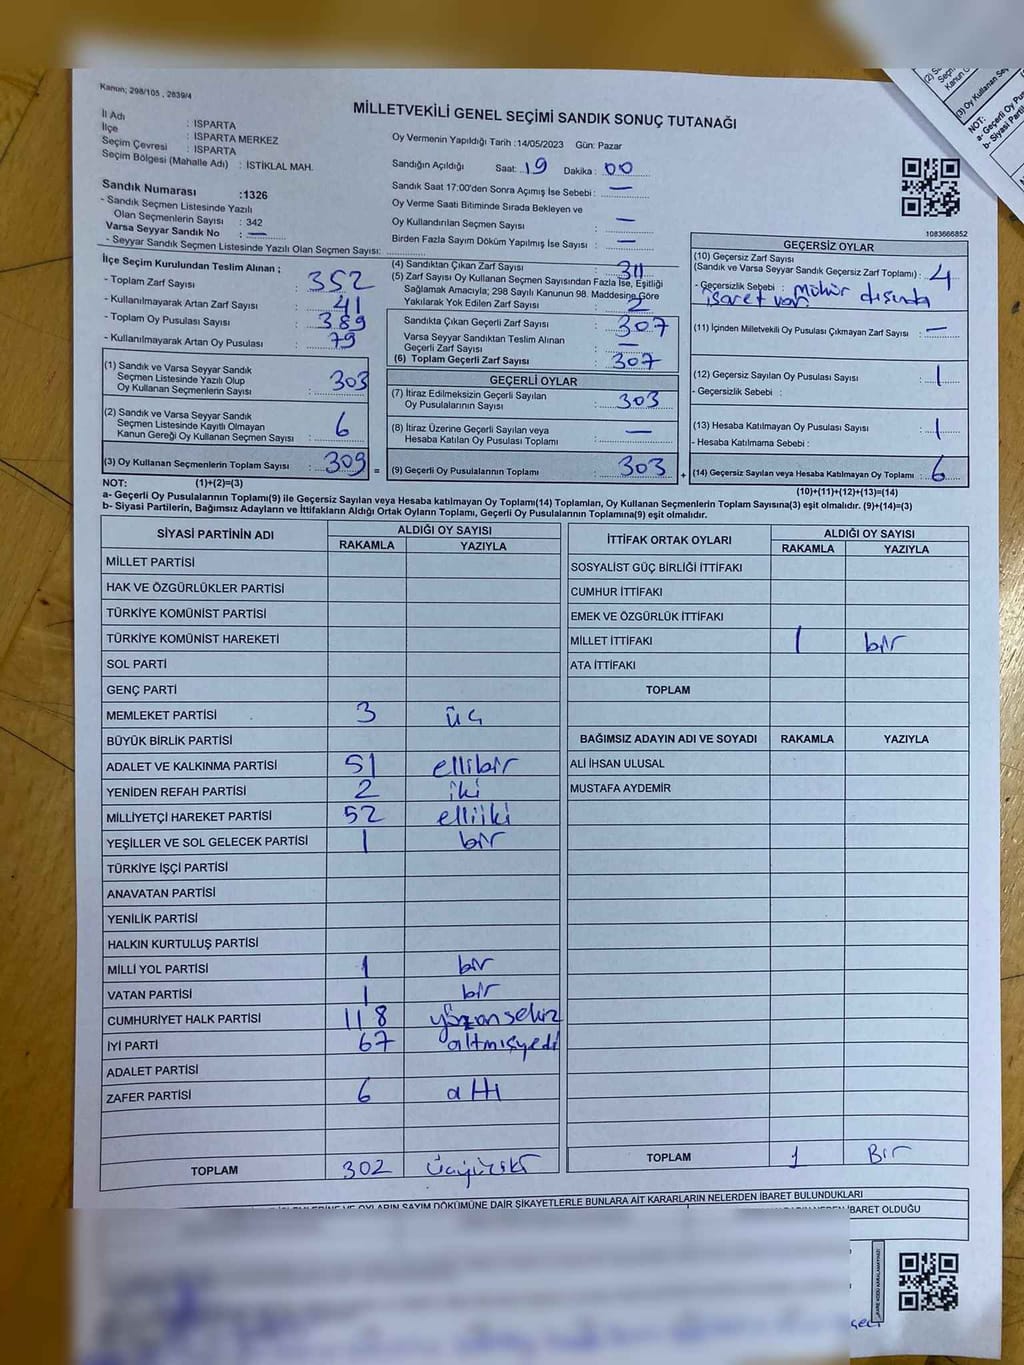 Kanun; 298/105 , 2839/4
MİLLETVEKİLİ GENEL SEÇİMİ SANDIK SONUÇ TUTANAĞI
İl Adı : ISPARTA
İlçe : ISPARTA MERKEZ
Seçim Çevresi : ISPARTA
Seçim Bölgesi (Mahalle Adı) : İSTİKLAL MAH.
Sandık Numarası :1326
- Sandık Seçmen Listesinde Yazılı
Olan Seçmenlerin Sayısı : 342
Varsa Seyyar Sandık No : —
- Seyyar Sandık Seçmen Listesinde Yazılı Olan Seçmen Sayısı:
Oy Vermenin Yapıldığı Tarih :14/05/2023 Gün: Pazar
Sandığın Açıldığı Saat: 19 Dakika : 00
Sandık Saat 17:00'den Sonra Açımış İse Sebebi : —
Oy Verme Saati Bitiminde Sırada Bekleyen ve
Oy Kullandırılan Seçmen Sayısı : —
Birden Fazla Sayım Döküm Yapılmış İse Sayısı : —
1083666852
İlçe Seçim Kurulundan Teslim Alınan ;
- Toplam Zarf Sayısı : 352
- Kullanılmayarak Artan Zarf Sayısı : 41
- Toplam Oy Pusulası Sayısı : 389
- Kullanılmayarak Artan Oy Pusulası : 79
(1) Sandık ve Varsa Seyyar Sandık
Seçmen Listesinde Yazılı Olup
Oy Kullanan Seçmenlerin Sayısı : 303
(2) Sandık ve Varsa Seyyar Sandık
Seçmen Listesinde Kayıtlı Olmayan
Kanun Gereği Oy Kullanan Seçmen Sayısı : 6
(3) Oy Kullanan Seçmenlerin Toplam Sayısı : 309 =
(4) Sandıktan Çıkan Zarf Sayısı : 311
(5) Zarf Sayısı Oy Kullanan Seçmen Sayısından Fazla İse, Eşitliği
Sağlamak Amacıyla; 298 Sayılı Kanunun 98. Maddesine Göre
Yakılarak Yok Edilen Zarf Sayısı : 2
Sandıkta Çıkan Geçerli Zarf Sayısı : 307
Varsa Seyyar Sandıktan Teslim Alınan
Geçerli Zarf Sayısı : —
(6) Toplam Geçerli Zarf Sayısı : 307
GEÇERLİ OYLAR
(7) İtiraz Edilmeksizin Geçerli Sayılan
Oy Pusulalarının Sayısı : 303
(8) İtiraz Üzerine Geçerli Sayılan veya
Hesaba Katılan Oy Pusulası Toplamı : —
(9) Geçerli Oy Pusulalarının Toplamı : 303 +
GEÇERSİZ OYLAR
(10) Geçersiz Zarf Sayısı
(Sandık ve Varsa Seyyar Sandık Geçersiz Zarf Toplamı) : 4
- Geçersizlik Sebebi : mühür dışında
işaret var.
(11) İçinden Milletvekili Oy Pusulası Çıkmayan Zarf Sayısı : —
(12) Geçersiz Sayılan Oy Pusulası Sayısı : 1
- Geçersizlik Sebebi :
(13) Hesaba Katılmayan Oy Pusulası Sayısı : 1
- Hesaba Katılmama Sebebi :
(14) Geçersiz Sayılan veya Hesaba Katılmayan Oy Toplamı : 6
NOT: (1)+(2)=(3) (10)+(11)+(12)+(13)=(14)
a- Geçerli Oy Pusulalarının Toplamı(9) ile Geçersiz Sayılan veya Hesaba katılmayan Oy Toplamı(14) Toplamları, Oy Kullanan Seçmenlerin Toplam Sayısına(3) eşit olmalıdır. (9)+(14)=(3)
b- Siyasi Partilerin, Bağımsız Adayların ve İttifakların Aldığı Ortak Oyların Toplamı, Geçerli Oy Pusulalarının Toplamına(9) eşit olmalıdır.
SİYASİ PARTİNİN ADI ALDIĞI OY SAYISI
RAKAMLA YAZIYLA
MİLLET PARTİSİ
HAK VE ÖZGÜRLÜKLER PARTİSİ
TÜRKİYE KOMÜNİST PARTİSİ
TÜRKİYE KOMÜNİST HAREKETİ
SOL PARTİ
GENÇ PARTİ
MEMLEKET PARTİSİ 3 üç
BÜYÜK BİRLİK PARTİSİ
ADALET VE KALKINMA PARTİSİ 51 ellibir
YENİDEN REFAH PARTİSİ 2 iki
MİLLİYETÇİ HAREKET PARTİSİ 52 elliiki
YEŞİLLER VE SOL GELECEK PARTİSİ 1 bir
TÜRKİYE İŞÇİ PARTİSİ
ANAVATAN PARTİSİ
YENİLİK PARTİSİ
HALKIN KURTULUŞ PARTİSİ
MİLLİ YOL PARTİSİ 1 bir
VATAN PARTİSİ 1 bir
CUMHURİYET HALK PARTİSİ 118 yüzonsekiz
İYİ PARTİ 67 altmışyedi
ADALET PARTİSİ
ZAFER PARTİSİ 6 altı
TOPLAM 302 üçyüziki
İTTİFAK ORTAK OYLARI ALDIĞI OY SAYISI
RAKAMLA YAZIYLA
SOSYALİST GÜÇ BİRLİĞİ İTTİFAKI
CUMHUR İTTİFAKI
EMEK VE ÖZGÜRLÜK İTTİFAKI
MİLLET İTTİFAKI 1 bir
ATA İTTİFAKI
TOPLAM
BAĞIMSIZ ADAYIN ADI VE SOYADI RAKAMLA YAZIYLA
ALİ İHSAN ULUSAL
MUSTAFA AYDEMİR
TOPLAM 1 Bir
OYLARIN SAYIM DÖKÜMÜNE DAİR ŞİKAYETLERLE BUNLARA AİT KARARLARIN NELERDEN İBARET BULUNDUKLARI
İBARET OLDUĞU